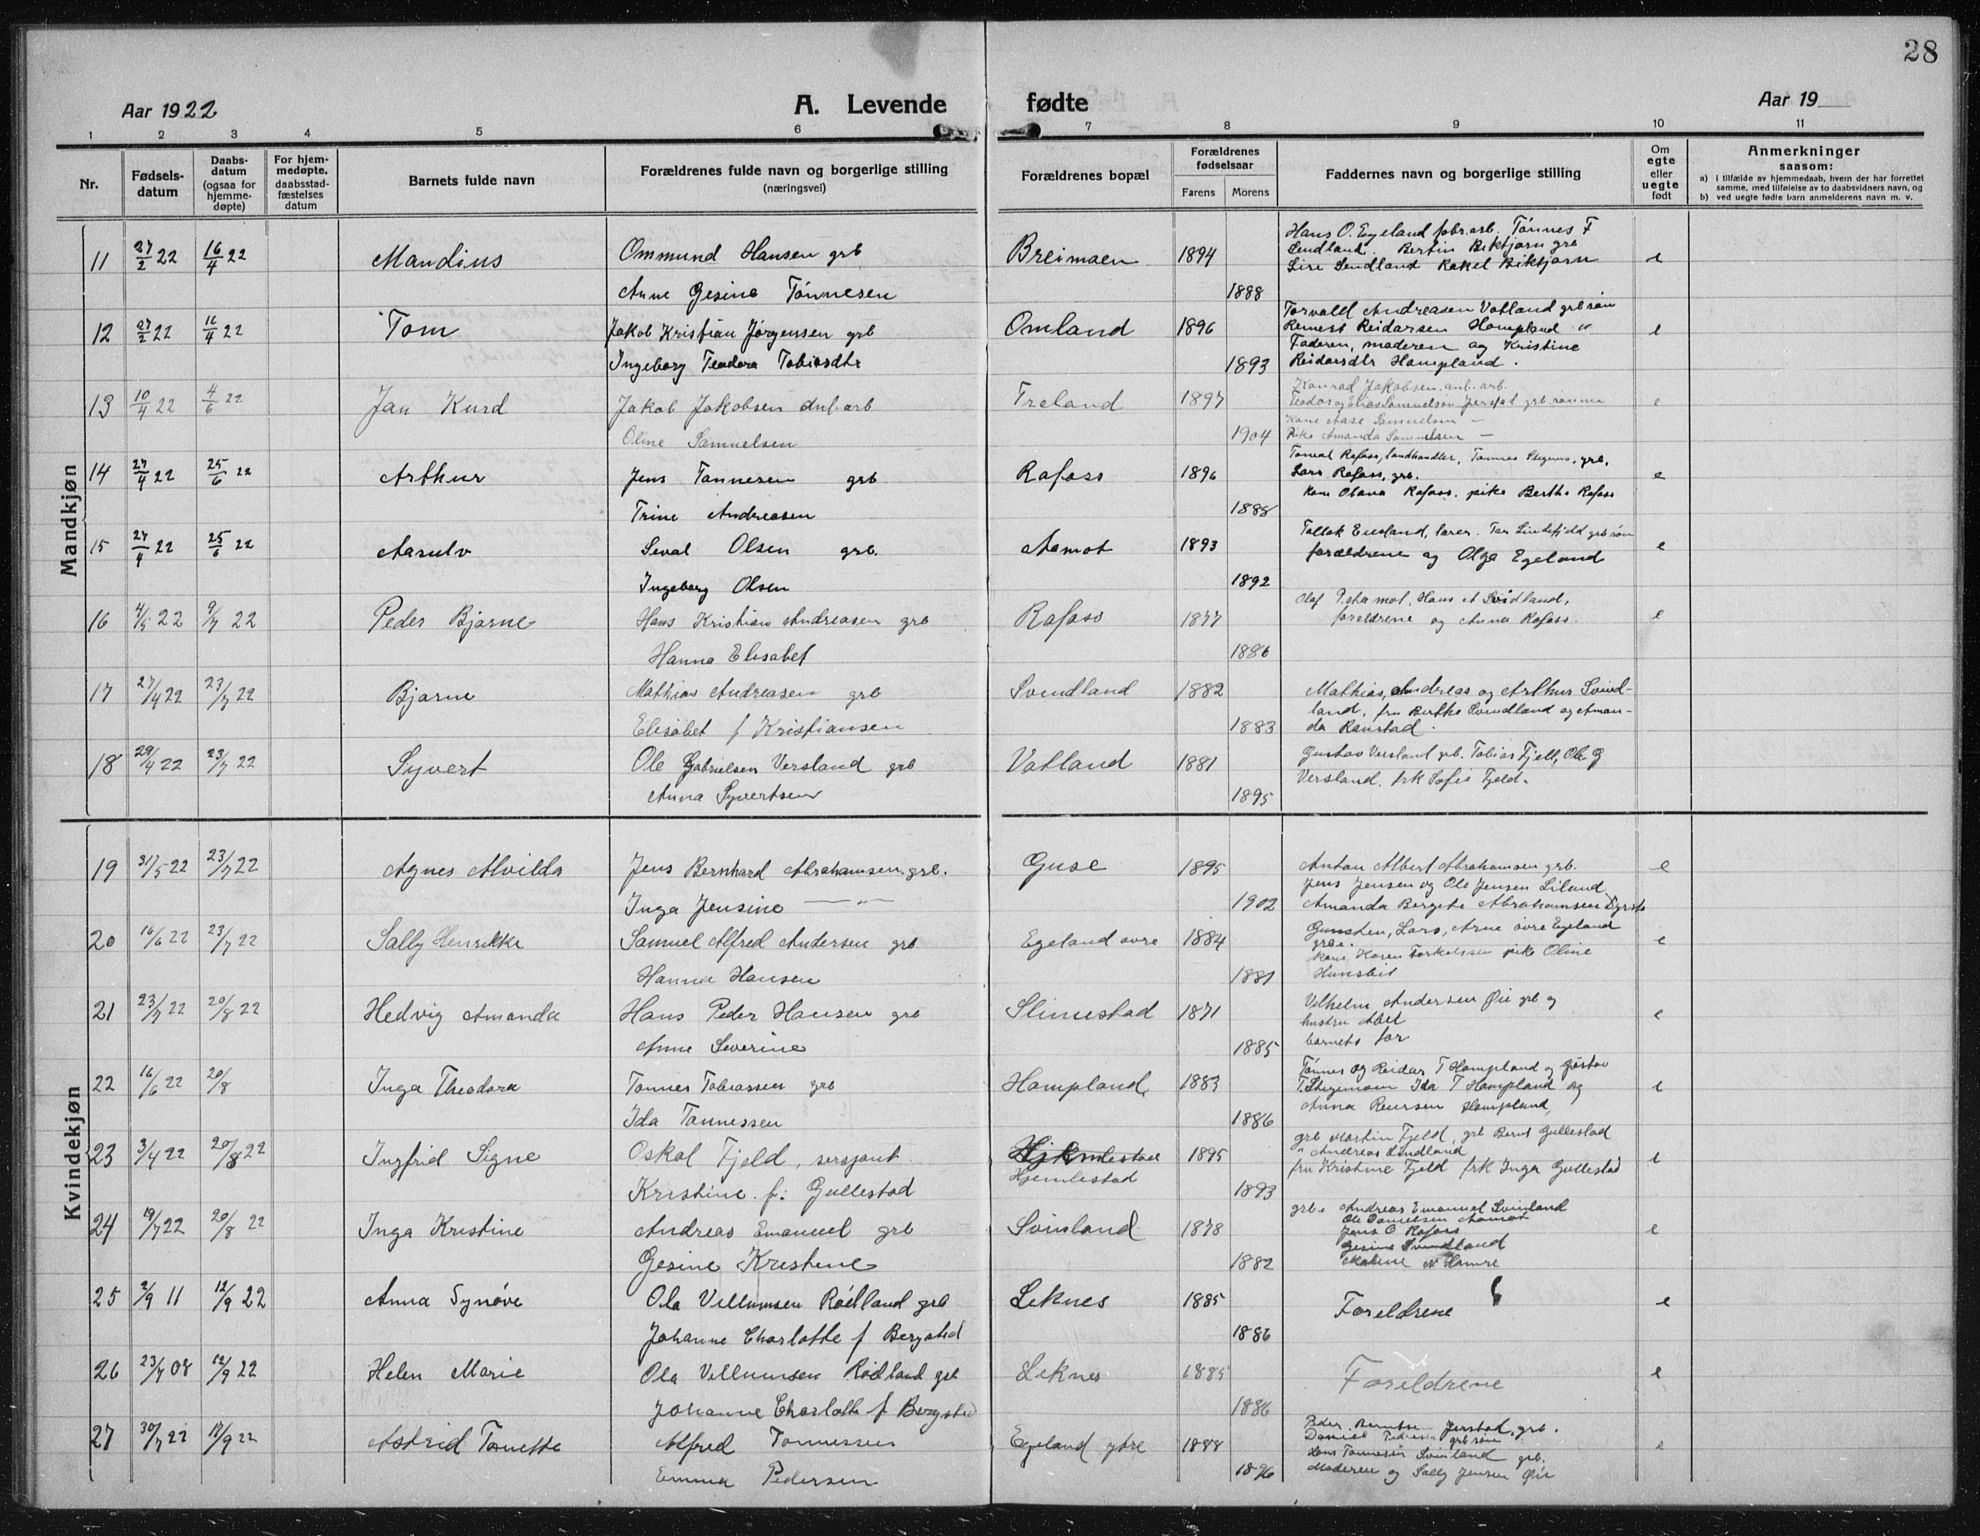 28
Aar 1922
A. Levende fødte
Aar 19
1 2 3 4 5 6 7 8 9 10 11
Nr.
Fødsels-
datum
Daabs-
datum
(ogsaa for
hjemme-
døpte)
For hjem-
medøpte,
daabsstad-
fæstelses
datum
Barnets fulde navn
Forældrenes fulde navn og borgerlige stilling
(næringsvei)
Forældrenes bopæl
Forældrenes
fødselsaar
Farens Morens
Faddernes navn og borgerlige stilling
Om
egte
eller
uegte
født
Anmerkninger
saasom:
a) i tilfælde av hjemmedaab, hvem der har forrettet
samme, med tilføielse av to daabsvidners navn, og
b) ved uegte fødte barn anmelderens navn m. v.
Mandkjøn
11 27/2 22 16/4 22 Mandius Ommund Hansen grb Breimoen 1894 Hans O. Egeland fabr.arb. Tønnes F e
Sendland Bertin Birkjorn grb
Sire Sendland Rakel Birkjorn
Anne Gesine Tønnesen 1888
12 27/2 22 16/4 22 Tom Jakob Kristian Jørgensen grb Omland 1896 Torvald Andreasen Vatland grb.søn e
Rernert Reidarsen Hompland "
Ingeborg Teodora Tobiasdtr 1893 Faderen, moderen og Kristine
Reidarsdtr Hompland.
13 10/4 22 4/6 22 Jan Kurd Jakob Jakobsen anl.arb Treland 1897 Konrad Jakobsen anl. arb. e
Teodor og Elias Samuelsen Jerstad grb.sønner
Oline Samuelsen 1904 Kone Aase Samuelsen –
Pike Amanda Samuelsen –
14 27/4 22 25/6 22 Arthur Jens Tønnesen grb Rafoss 1896 Tomal Rafoss, landhandler, Tønnes Stegemo, grb, e
Lars Rafoss, grb.
Trine Andreasen 1888 Kone Olava Rafoss, pike Bertha Rafoss
15 27/4 22 25/6 22 Aasulv Seval Olsen grb. Aamot 1893 Tallak Eiesland, lærer. Tar Lindefjeld grb.søn e
forældrene og Olga Egeland
Ingeborg Olsen 1892
16 4/5 22 9/7 22 Peder Bjarne Hans Kristian Andreasen grb Rafoss 1877 Olaf P. Aamot, Hans A Svindland, e
foreldrene og Anna Rafoss.
Hanna Elisabet 1886
17 27/4 22 23/7 22 Bjarne Mathias Andreasen grb Svindland 1882 Mathias, Andreas og Arthur Svind-
land, fru Berthe Svindland og Aman-
Elisabet f Kristiansen 1883 da Raustad.
18 29/4 22 23/7 22 Syvert Ole Gabrielsen Versland grb Vatland 1881 Gustav Versland grb. Tobias Fjell, Ole G
Versland. frk Sofie Fjeld.
Anna Syvertsen 1895
Kvindekjøn
19 31/5 22 23/7 22 Agnes Alvilda Jens Bernhard Abrahamsen grb. Guse 1895 Anton Albert Abrahamsen grb. e
Jens Jensen og Ole Jensen Liland
Inga Jensine — " — 1902 Amanda Bergete Abrahamsen
20 16/6 22 23/7 22 Sally Henrikke Samuel Alfred Andersen grb Egeland øvre 1884 Gunsten, Lars, Arne øvre Egeland e
grbe. kone Karen Torkelsen pike Oline
Hanna Hansen 1881 Hunsbit
21 23/7 22 20/8 22 Hedvig Amanda Hans Peder Hansen grb Slimestad 1871 Vilhelm Andersen Øie grb og e
hustru Abel
Anne Severine 1885 barnets far
22 16/6 22 20/8 Inga Theodora Tønnes Tobiassen grb Hompland 1883 Tønnes og Reidar T Hompland og Gustav e
T. Stegemoen Ida T Hompland og
Ida Tønnessen 1886 Anna Reiersen Hompland,
23 3/4 22 20/8 22 Ingfrid Signe Oskal Fjeld, sersjant Hjemlestad 1895 grb Martin Fjeld, grb Bernt Gullestad e
" Andreas Lindland
Kristine f: Gullestad Hjemlestad 1893 fru Kristine Fjeld frk Inga Gullestad
24 19/7 22 20/8 22 Inga Kristine Andreas Emanuel grb Svinland 1878 grb. Andreas Emanuel Svinland e
Ole Danielsen Aamot
Jens O Rafoss
Gesine Kristine 1882 Gesine Svindland
Malene N Hamre
25 2/9 11 12/9 22 Anna Synøve Ola Villumsen Rødland grb Leknes 1885 Foreldrene e
Johanne Charlotte f Bergstad 1886
26 23/7 08 12/9 22 Helen Marie Ola Villumsen Rødland grb Leknes 1885 Foreldrene e
Johanne Charlotte f Bergstad 1886
27 30/7 22 17/9 22 Astrid Tonette Alfred Tønnessen Egeland ytre 1888 Peder Berntsen Jerstad, grb. e
Hans Tønnesen Svinland grb.
Emma Pedersen 1896 Moderen og Sally Jensen Øie